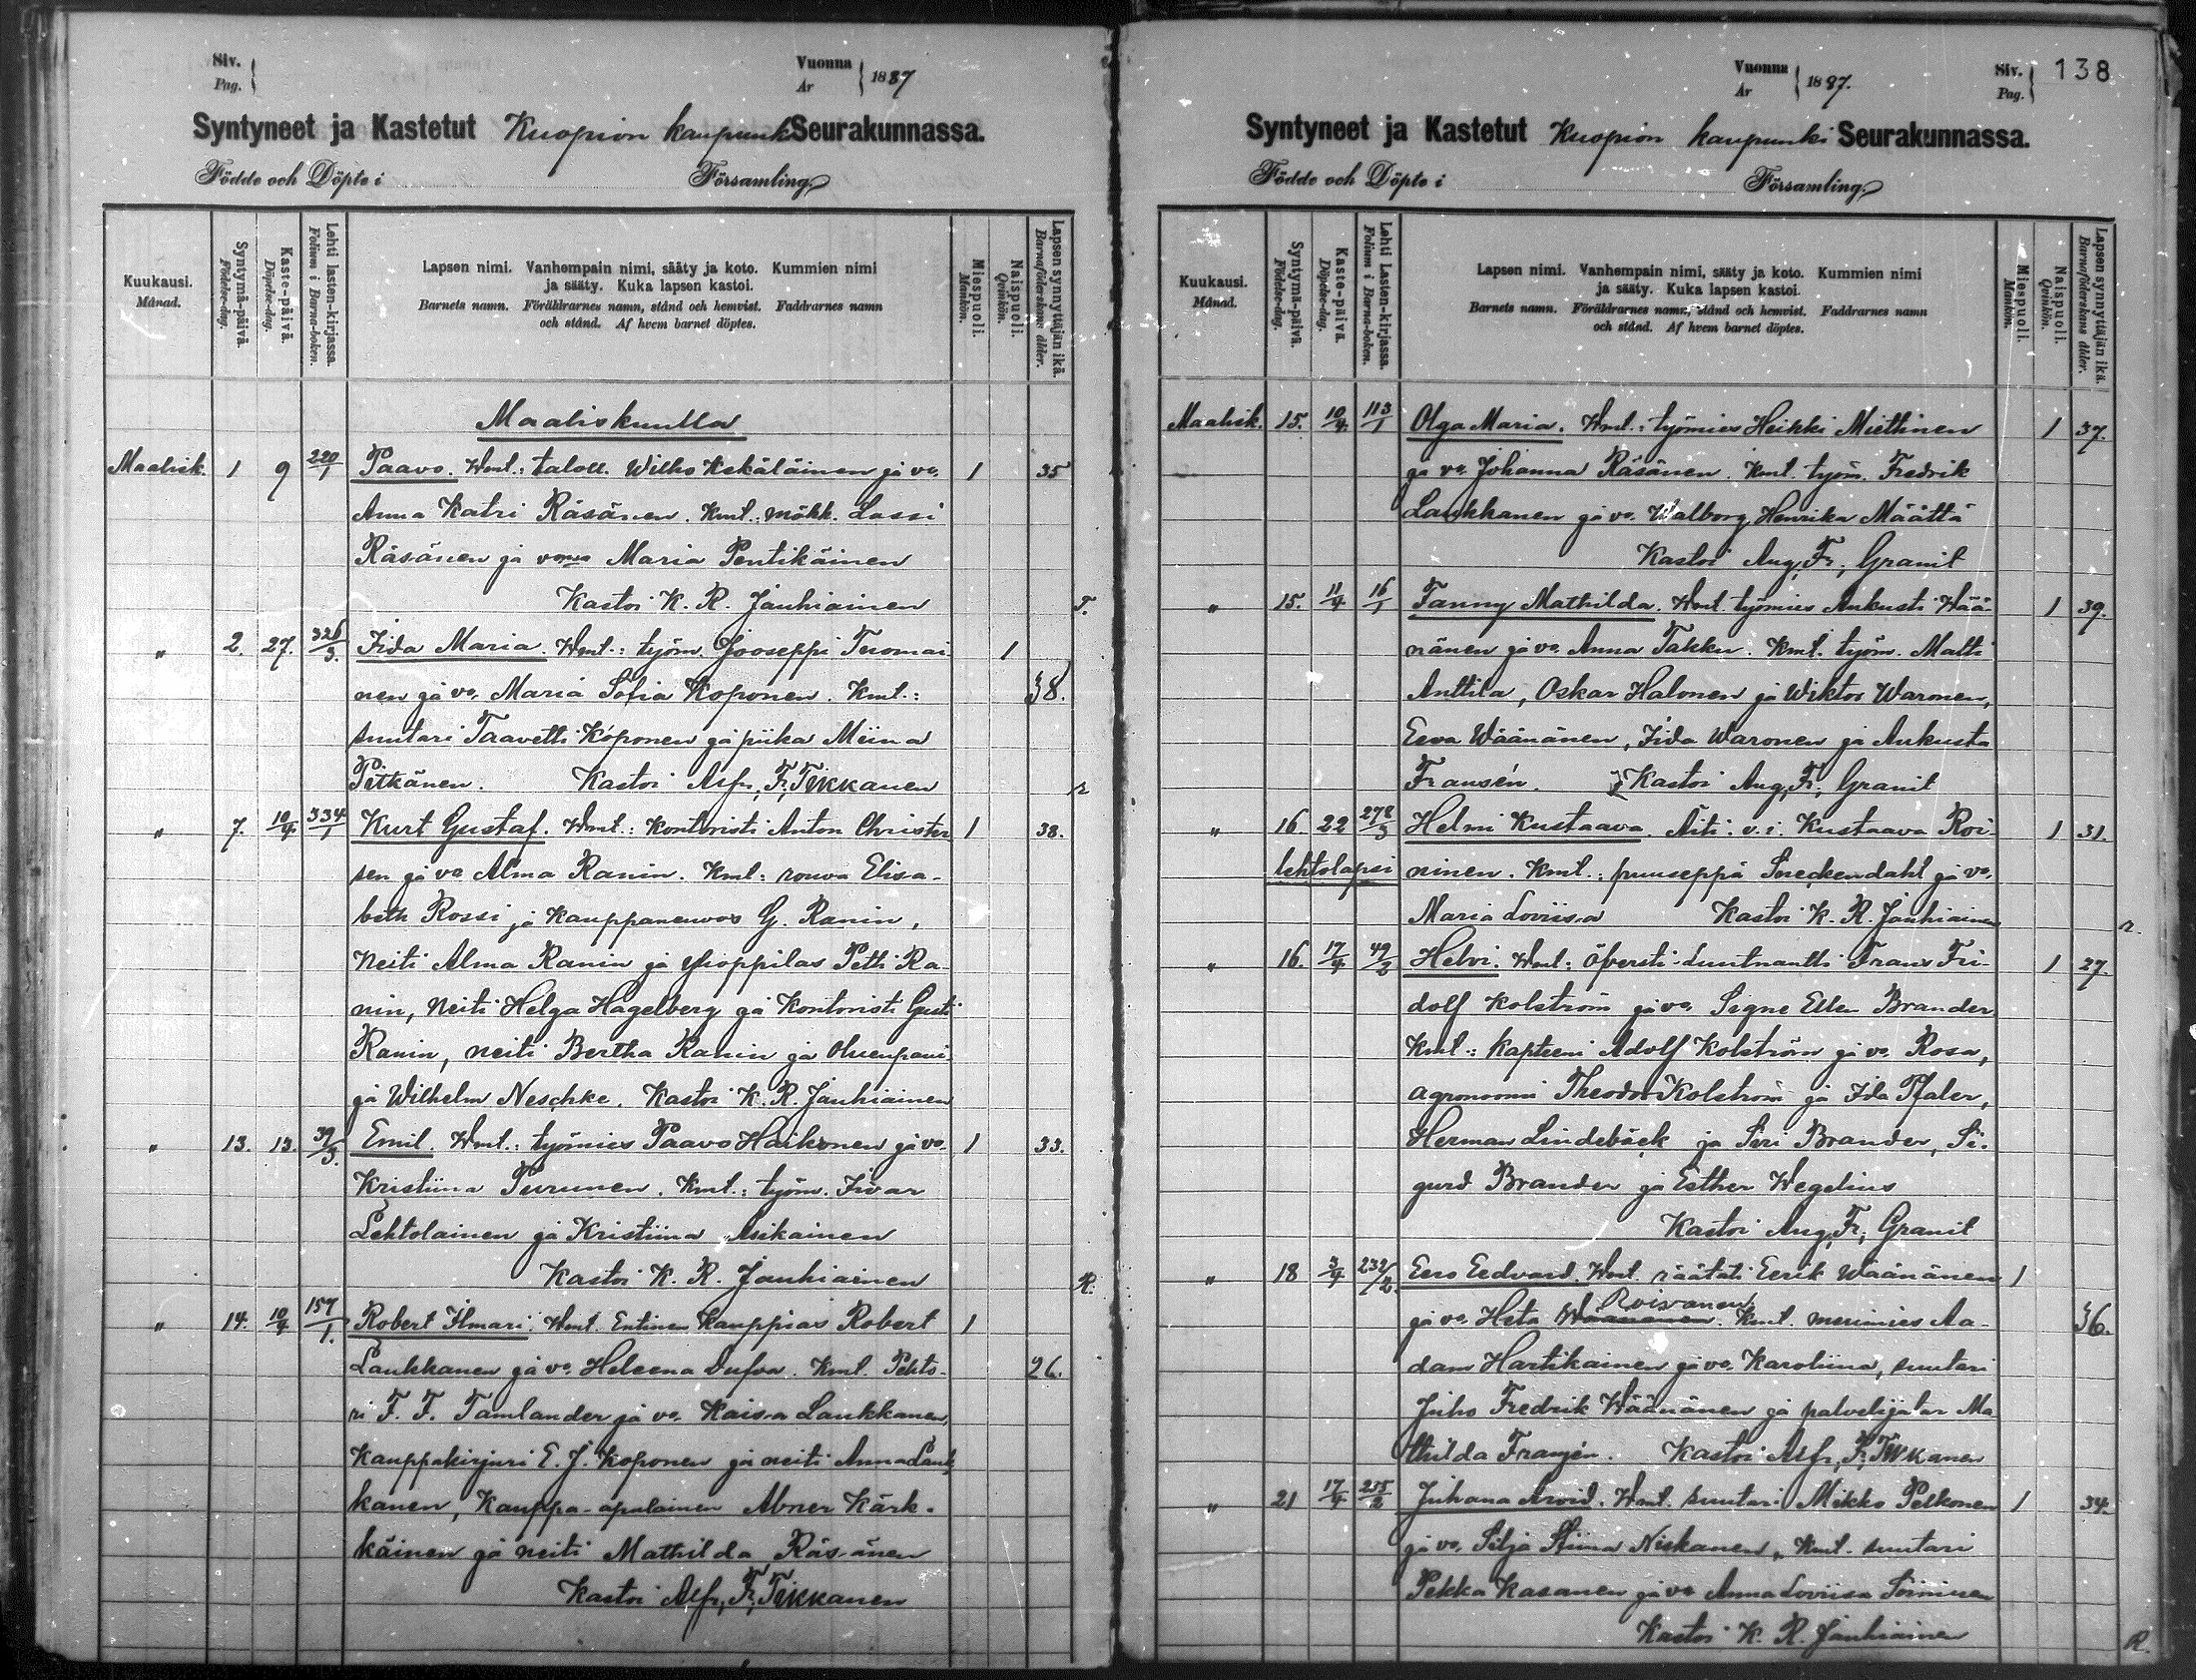 Siv.
Pag.
Vuonna
År
1887
Syntyneet ja Kastetut Kuopion kaupunki Seurakunnassa.
Födde och Döpte i Församling.
Kuukausi.
Månad.
Syntymä-päivä.
Födelse-dag.
Kaste-päivä.
Döpelse-dag.
Lehti lasten-kirjassa.
Folium i Barna-boken.
Lapsen nimi. Vanhempain nimi, sääty ja koto. Kummien nimi
ja sääty. Kuka lapsen kastoi.
Barnets namn. Föräldrarnes namn, stånd och hemvist. Faddrarnes namn
och stånd. Af hvem barnet döptes.
Miespuoli.
Mankön.
Naispuoli.
Qvinkön.
Lapsen synnyttäjän ikä.
Barnaföderskans ålder.
Maaliskuulla
Maalisk. 1 9 220/1 Paavo. Wmt.: taloll. Wilho Kekäläinen ja vo. 1 35
Anna Katri Räsänen. Kmt.: mökk. Lassi
Räsänen ja vonsa Maria Pentikäinen
Kastoi K. R. Jauhiainen T.
" 2. 27. 326/3. Iida Maria. Wmt.: työm. Jooseppi Tuomai 1
nen ja vo. Maria Sofia Koponen. Kmt.: 38.
suutari Taavetti Koponen ja piika Miina
Pitkänen. Kastoi Alfr. Fr. Tikkanen r
" 7. 10/4 334/1 Kurt Gustaf. Wmt.: Kontoristi Anton Christer 1 38.
sen ja vo Alma Ranin. Kmt.: rouva Elisa-
beth Rossi ja Kauppaneuvos G. Ranin,
Neiti Alma Ranin ja ylioppilas Petti Ra-
nin, Neiti Helga Hagelberg ja Kontoristi Gusti
Ranin, neiti Bertha Ranin ja oluenpani
ja Wilhelm Neschke. Kastoi K. R. Jauhiainen
" 13. 13. 39/3. Emil. Wmt.: työmies Paavo Haikonen ja vo. 1 33.
Kristiina Turunen. Kmt.: työm. Iivar
Lehtolainen ja Kristiina Asikainen
Kastoi K. R. Jauhiainen R.
" 14. 10/4 157/1. Robert Ilmari. Wmt. Entinen Kauppias Robert 1
Laukkanen ja vo. Heleena Dufva. Kmt. Rehto- 26.
ri F. F. Tamlander ja vo. Kaisa Laukkanen,
Kauppakirjuri E. J. Koponen ja neiti Anna Lauk
kanen, Kauppa-apulainen Abner Kärk-
käinen ja neiti Mathilda Räsänen
Kastoi Alfr. Fr. Tikkanen
Vuonna
År
1887.
Siv.
Pag.
138
Syntyneet ja Kastetut Kuopion kaupunki Seurakunnassa.
Födde och Döpte i Församling.
Kuukausi.
Månad.
Syntymä-päivä.
Födelse-dag.
Kaste-päivä.
Döpelse-dag.
Lehti Lasten-kirjassa.
Folium i Barna-boken.
Lapsen nimi. Vanhempain nimi, sääty ja koto. Kummien nimi
ja sääty. Kuka lapsen kastoi.
Barnets namn. Föräldrarnes namn, stånd och hemvist. Faddrarnes namn
och stånd. Af hvem barnet döptes.
Miespuoli.
Mankön.
Naispuoli.
Qvinkön.
Lapsen synnyttäjän ikä.
Barnaföderskans ålder.
Maalisk. 15. 10/4. 113/1 Olga Maria. Wmt.: työmies Heikki Miettinen 1 37.
ja vo. Johanna Räsänen. Kmt. työm. Fredrik
Laukkanen ja vo. Walborg Henrika Määttä
Kastoi Aug. Fr. Granit
" 15. 11/4 16/1 Fanny Mathilda. Wmt. työmies Aukusti Wää- 1 39.
nänen ja vo. Anna Takku. Kmt. työm. Matti
Anttila, Oskar Halonen ja Wiktor Waronen,
Eeva Wäänänen, Iida Waronen ja Aukusta
Fransén. Kastoi Aug. Fr. Granit
" 16 22 278/3 Helmi Kustaava. Äiti: v. i. Kustaava Roi- 1 31.
lehtolapsi ninen. Kmt.: puuseppä Sneckendahl ja vo.
Maria Loviisa Kastoi K. R. Jauhiainen r.
" 16. 17/4 49/2 Helvi. Wmt.: öfversti-luutnantti Frans Fri- 1 27.
dolf Kolström ja vo. Signe Ellen Brander
Kmt.: Kapteeni Adolf Kolström ja vo. Rosa,
agronoomi Theodor Kolström ja Ida Pfaler,
Herman Lindebäck ja Siri Brander, Si-
gurd Brander ja Esther Wegelius
Kastoi Aug. Fr. Granit
" 18 3/4 232/2. Eero Eedvard. Wmt. räätäli Eerik Wäänänen 1
Roivanen
ja vo. Heta Wäänänen. Kmt. merimies Aa- 36.
dam Hartikainen ja vo. Karoliina, suutari
Juho Fredrik Wäänänen ja palvelijatar Ma
thilda Fransén. Kastoi Alfr. Fr. Tikkanen
" 21 17/4 255/2 Juhana Arvid. Wmt. suutari Mikko Pelkonen 1 34.
ja vo. Silja Stiina Niskanen. Kmt. suutari
Pekka Kasanen ja vo Anna Loviisa Soininen
Kastoi K. R. Jauhiainen R.